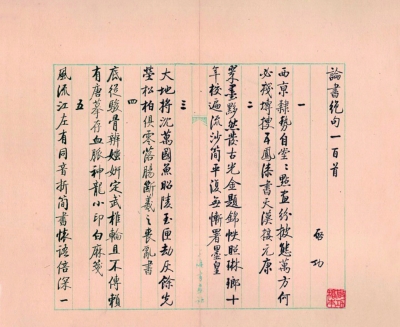 論書絕句一百首
啓功
一
西京隸勢自堂堂點畫紛披態萬方何
必殘塼搜五鳳漆書天漢接元康
二
翠墨黟然發古光金題錦帙照琳瑯十
年校遍流沙簡平復無慚署墨皇
三
大地將沈萬國魚昭陵玉匣劫灰餘先
塋松柏俱零落腸斷羲之喪亂書
四
底從駿骨辨媸妍定武椎輪且不傳賴
有唐摹存血脈神龍小印白麻箋
五
風流江左有同音折簡書懷語倍深一